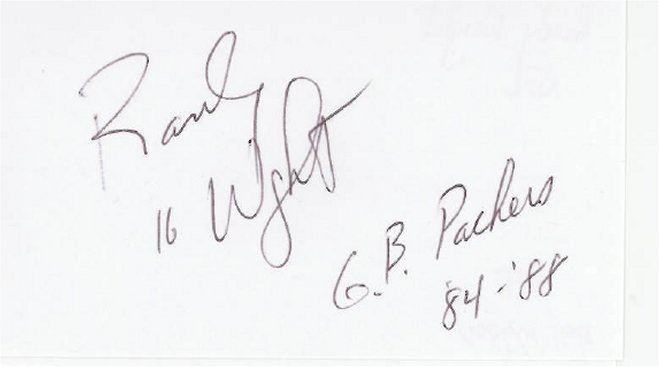 Randy
16 Wright
G.B. Packers
'84-'88